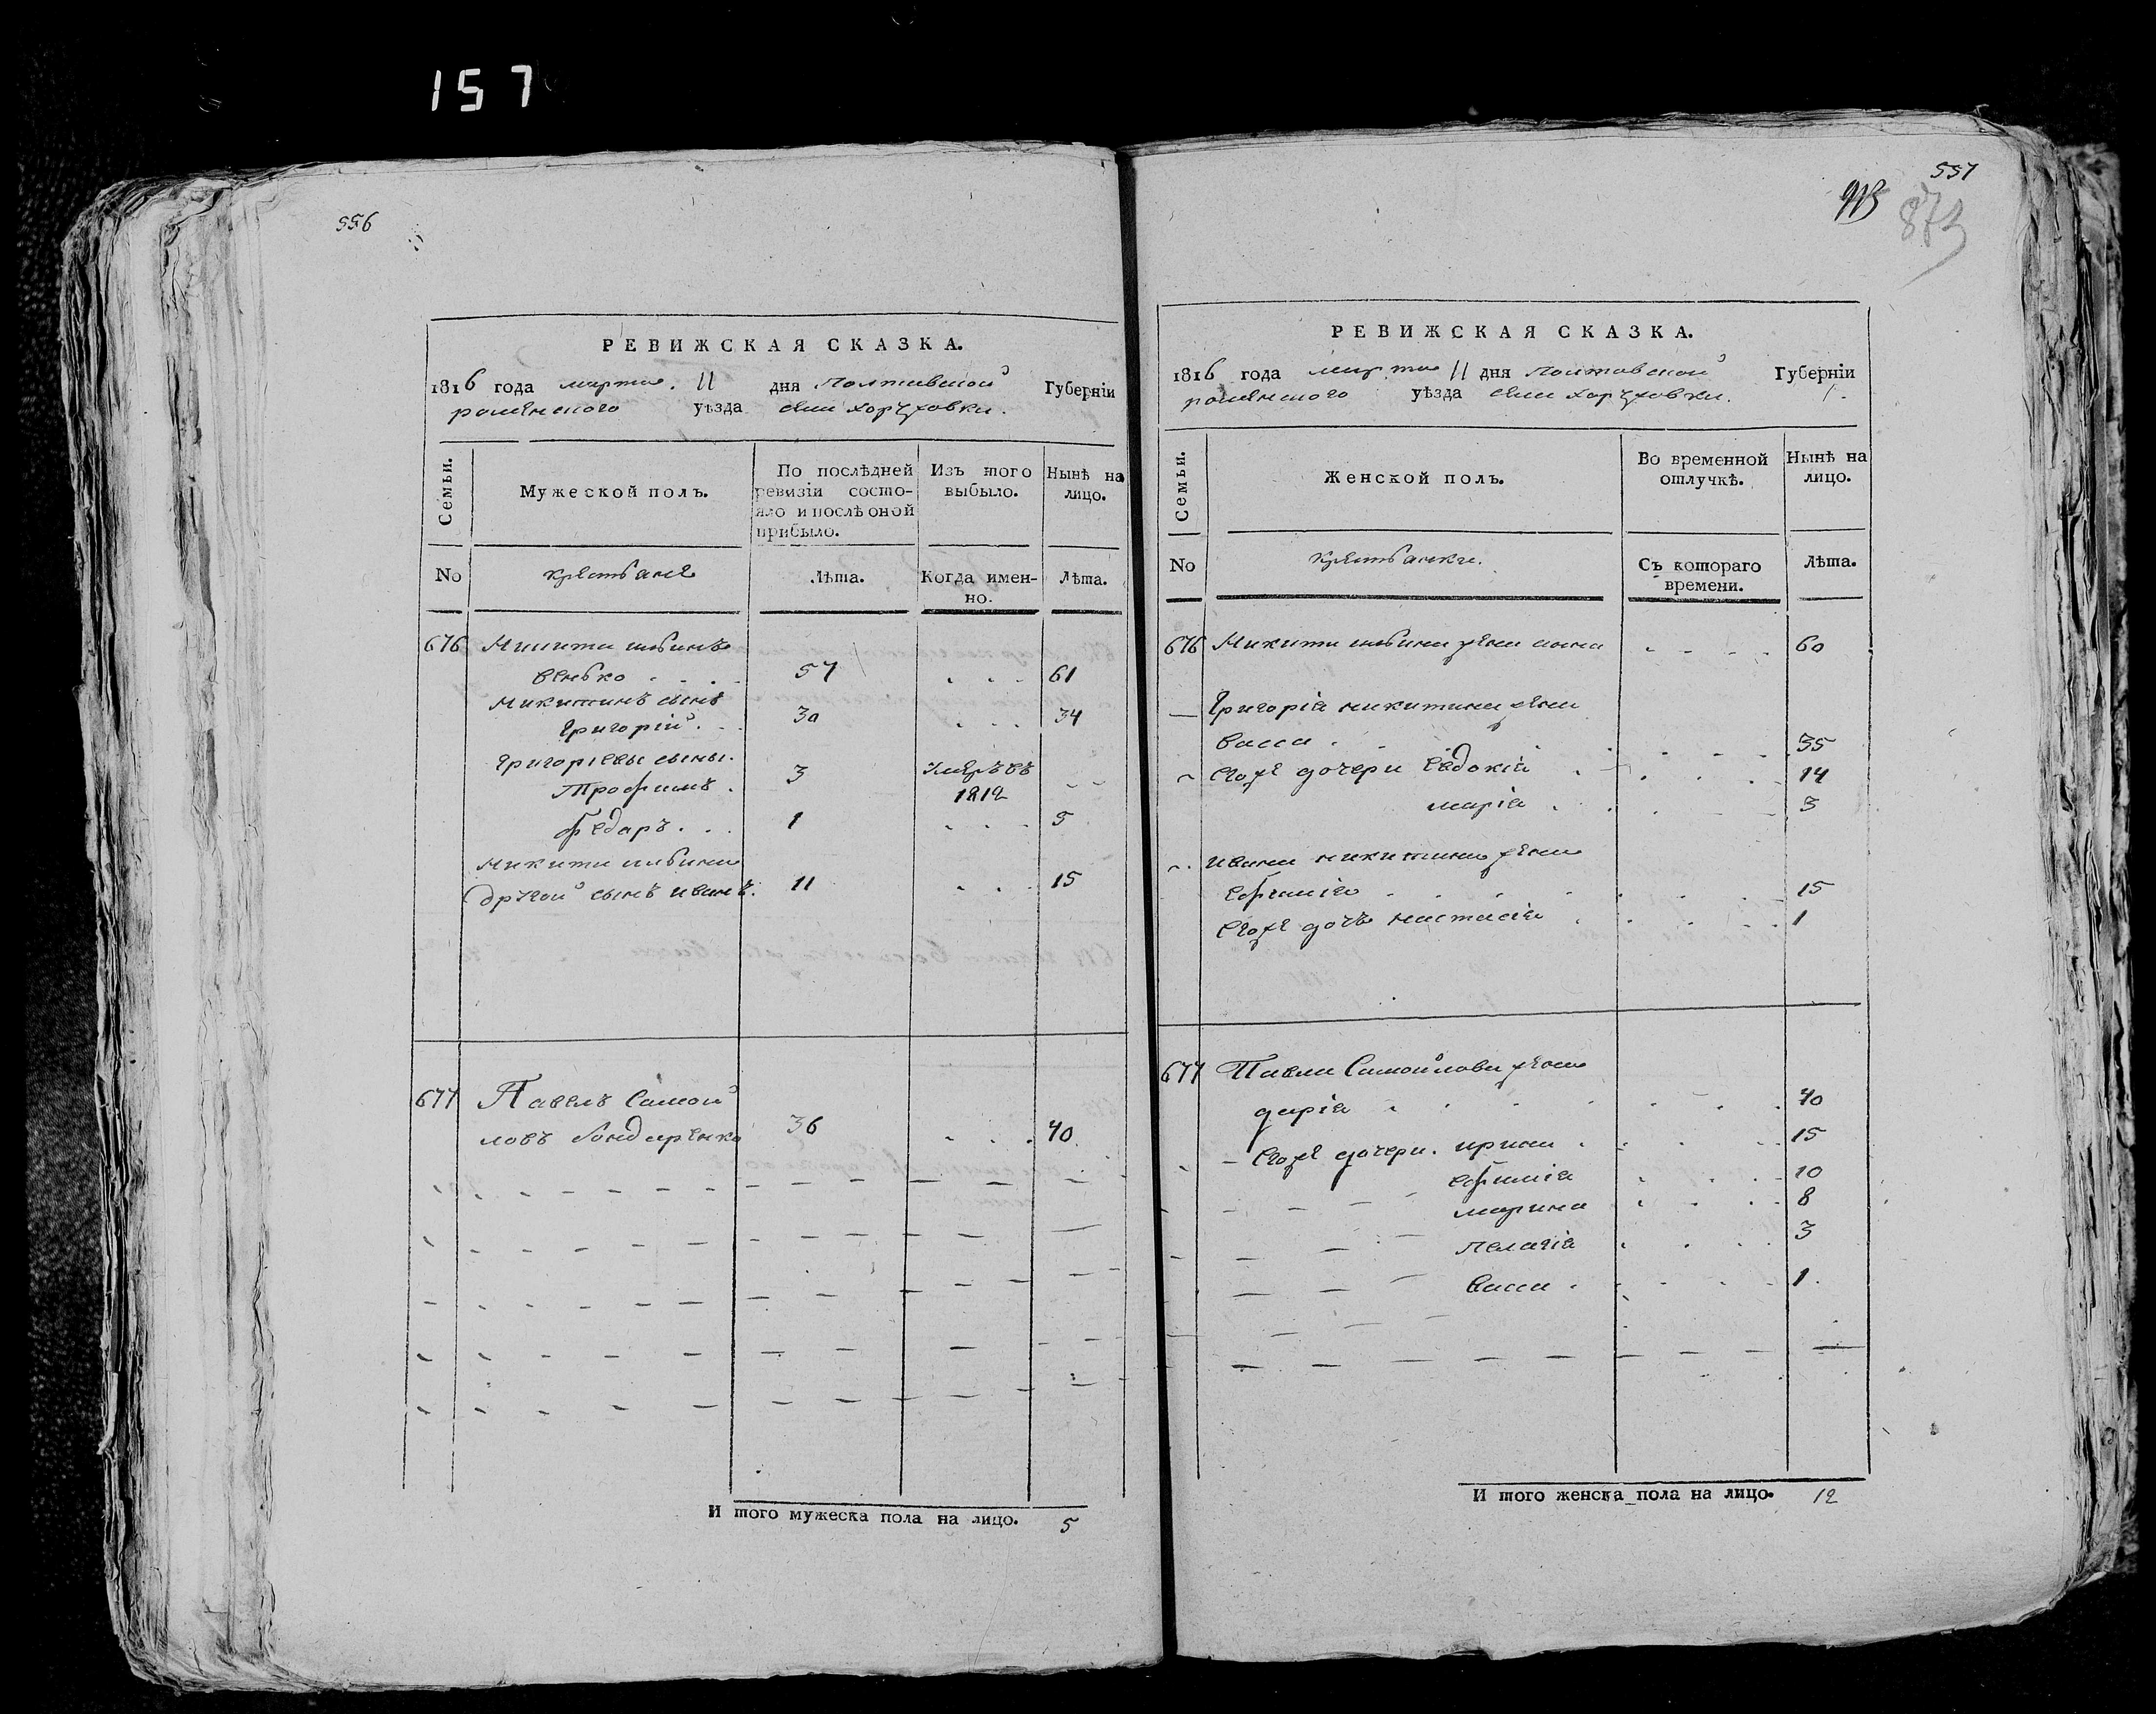 157
556
РЕВИЖСКАЯ СКАЗКА.
1816 года марта 11 дня Полтавской Губерніи
роменского уѣзда села хоружовки.
Семьи.
Мужеской полъ.
По послѣдней ревизіи состояло и послѣ оной прибыло.
Изъ того выбыло.
Нынѣ на лицо.
No
крестьяне
Лѣта.
Когда именно.
Лѣта.
676 Микита
57 61
Микитинъ сынъ
Григорій 30 34
Григоріевы сыны
Трофимъ 3 умеръ въ 1812
федоръ 1 5
Микиты
другой сынъ иванъ 11 15
677 Павелъ Самой
ловъ бондаренко 36 40
И того мужеска пола на лицо. 5
557
873
РЕВИЖСКАЯ СКАЗКА.
1816 года марта 11 дня полтавской Губерніи
роменского уѣзда села хоружовки.
Семьи.
Женской полъ.
Во временной отлучкѣ.
Нынѣ на лицо.
No
крестьянки.
Съ котораго времени.
Лѣта.
676 Микиты жена анна 60
Григорія никитина жена
васса 35
Его же дочери Евдокія 14
марія 3
ивана никитина жена
Ефимія 15
Его же дочь настасія 1
677 Павла Самойлова жена
дарія 40
Его же дочери. ирина 15
Ефимія 10
марина 8
пелагія 3
васса 1
И того женска пола на лицо. 12